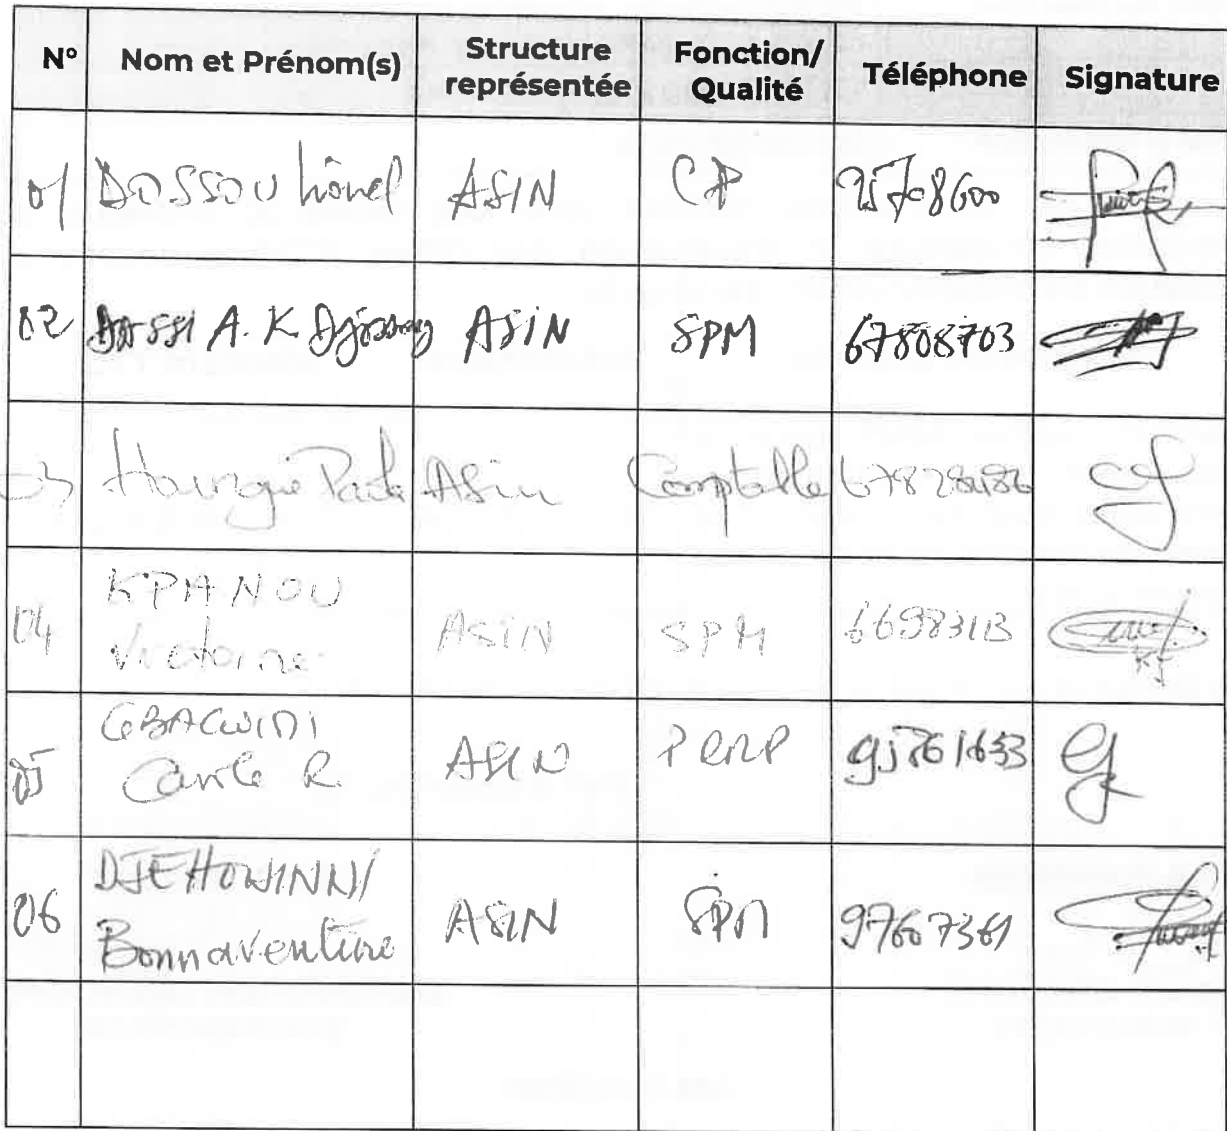 N° Nom et Prénom(s) Structure représentée Fonction/ Qualité Téléphone Signature
01 DOSSOU Lionel ASIN CP 95708600
02 DOSSI A. K ASIN SPM 67808703
03 Asin Comptable
04 KPANOU Victoire ASIN SPM
05 GBAGUIDI Carole R. ASIN PRMP
06 DJEHOUINNI Bonnaventure ASIN SPM 97607361